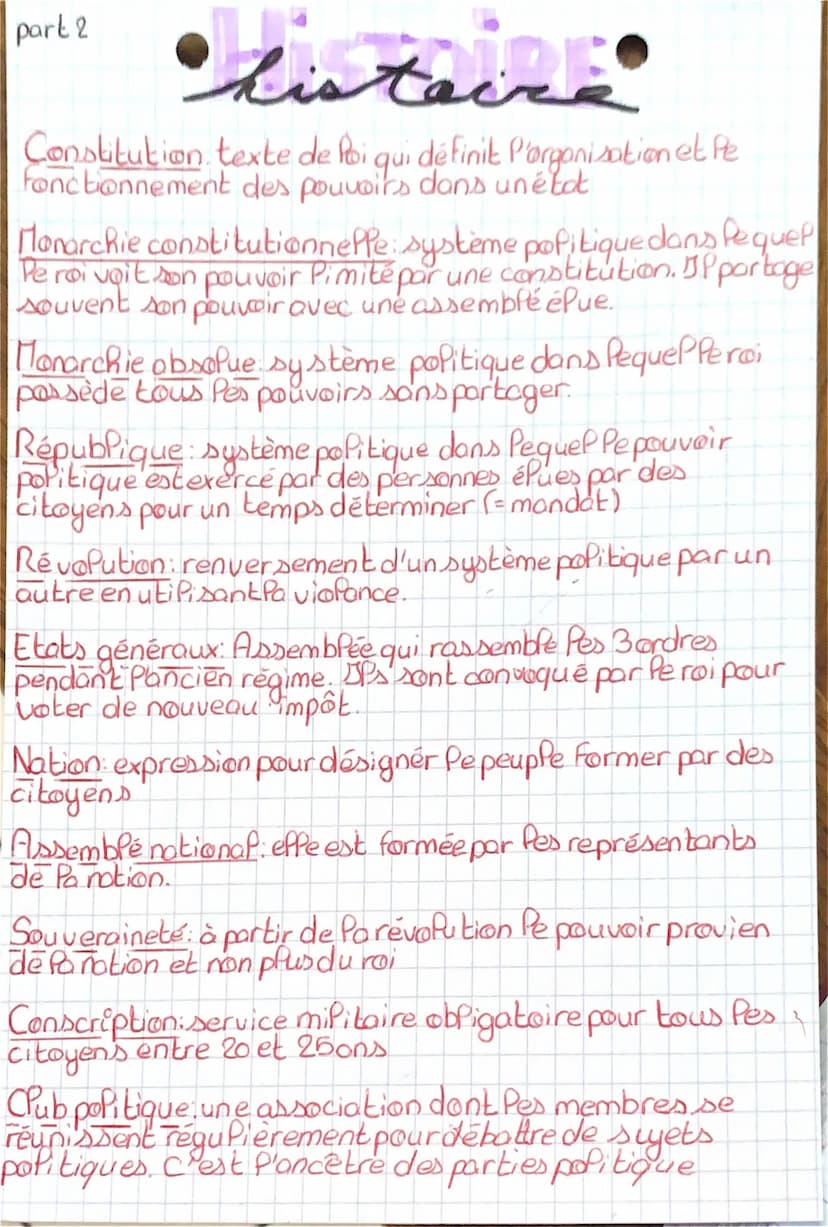 part 2
HISTOIRE
histoire
Constitution. texte de loi qui définit l'organisation et le
fonctionnement des pouvoirs dans un état
Monarchie constitutionnelle: système politique dans lequel
le roi voit son pouvoir limité par une constitution. Il partage
souvent son pouvoir avec une assemblé élue.
Monarchie absolue: système politique dans lequel le roi
possède tous les pouvoirs sans partager.
République: système politique dans lequel le pouvoir
politique est exercé par des personnes élues par des
citoyens pour un temps déterminer (= mandat)
Révolution: renversement d'un système politique par un
autre en utilisant la violance.
Etats généraux: Assemblée qui rassemble les 3 ordres
pendant l'ancien régime. Ils sont convoqué par le roi pour
voter de nouveau impôt.
Nation: expression pour désigner le peuple former par des
citoyens
Assemblé national: elle est formée par les représentants
de la nation.
Souveraineté: à partir de la révolution le pouvoir provien
de la nation et non plus du roi
Conscription: service militaire obligatoire pour tous les
citoyens entre 20 et 25 ans
Club politique: une association dont les membres se
réunissent régulièrement pour débattre de sujets
politiques. C'est l'ancêtre des parties politique